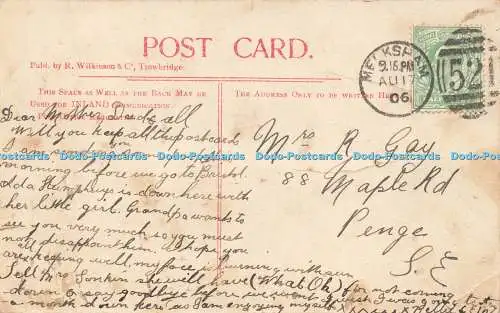 POST CARD.
Publ. by R. Wilkinson & Co, Trowbridge.
THIS SPACE AS WELL AS THE BACK MAY BE
USED FOR INLAND COMMUNICATION
THE ADDRESS ONLY TO BE WRITTEN HERE
MELKSHAM
9.15 PM
AU 17
06
52
Dear Mother Dad & all
will you keep all the postcards
I am
morning before we go to Bristol
Humphreys is down here with
her little girl. Grandpa wants to
see you very much so you must
not disappoint him. I hope you
are keeping well, my face is burning with sun
Tell Mrs. she will have (What Oh) for not coming
down or say goodbye before we went I wish I was going to st
a month down here as I am enjoying myself
Mrs R Gay
88 Maple Rd
Penge
S.E
Dodo-Postcards Dodo-Postcards Dodo-Postcards Dodo-Postcards Dodo-Postcards